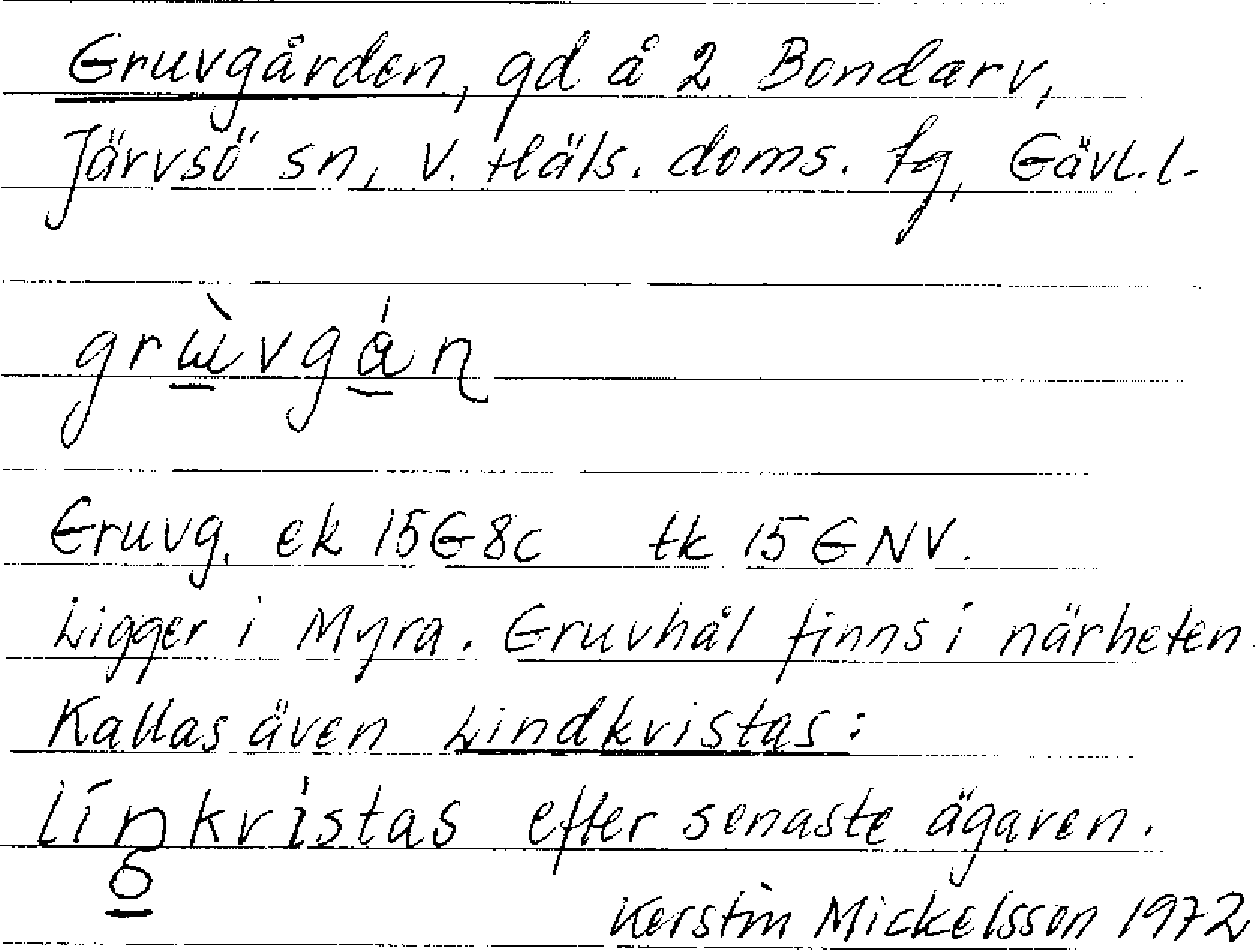 Gruvgården, gd å 2 Bondarv,
Järvsö sn, V. Häls. doms. tg, Gävl.l.
grɯ̀vgán
Gruvg. ek 15G8c tk 15GNV.
Ligger i Myra. Gruvhål finns i närheten.
Kallas även Lindkvistas:
línkvìstas efter senaste ägaren.
Kerstin Mickelsson 1972